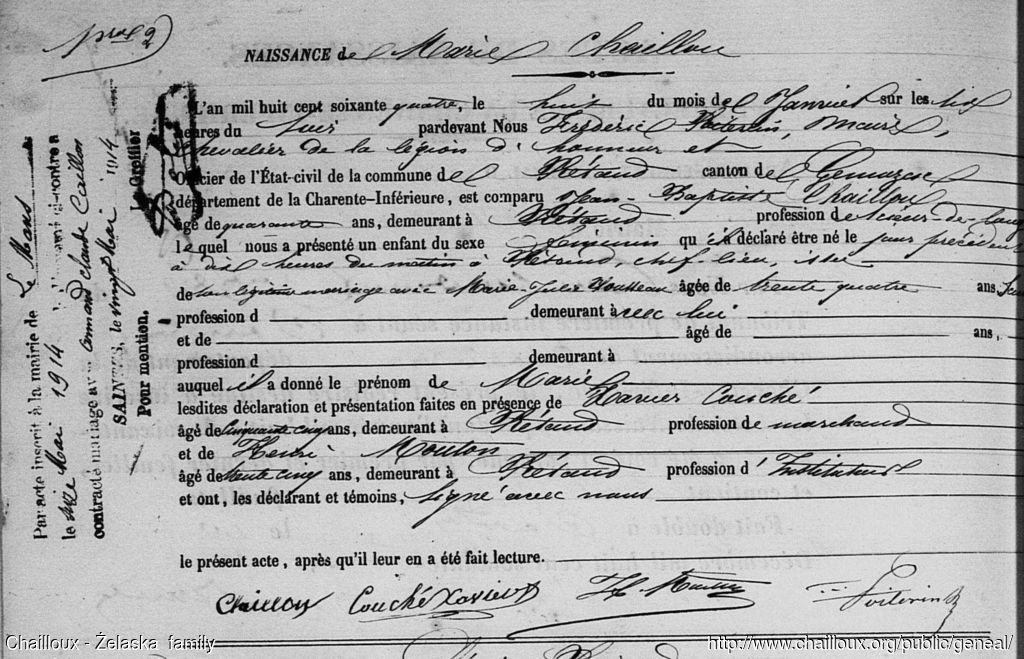 NAISSANCE de Marie Chaillou
L'an mil huit cent soixante quatre, le huit du mois de Janvier sur les six
heures du soir pardevant Nous Frédéric Poitevin, maire,
chevalier de la légion d'honneur et
Officier de l'État-civil de la commune de Rétaud canton de Gemozac
département de la Charente-Inférieure, est comparu Jean-Baptiste Chailloux
âgé de quarante ans, demeurant à Rétaud profession de scieur-de-long
lequel nous a présenté un enfant du sexe féminin qu'il déclaré être né le jour précédent
à dix heures du matin à Rétaud, chef-lieu, issu
de son légitime mariage avec Marie-Julie âgée de trente quatre ans,
profession d demeurant à avec lui
et de âgé de ans,
profession d demeurant à
auquel il a donné le prénom de Marie
lesdites déclaration et présentation faites en présence de Xavier Couché
âgé de cinquante cinq ans, demeurant à Rétaud profession de marchand
et de Henri Mouton
âgé de trente cinq ans, demeurant à Rétaud profession d'Instituteur
et ont, les déclarant et témoins, signé avec nous
le présent acte, après qu'il leur en a été fait lecture.
Chaillou Couché Xavier H. Mouton Poitevin
Par acte inscrit à la mairie de Le Mans
le seize Mai 1914
contracté mariage avec Armand Claude Caillon
SAINTES, le vingt Mai 1914
Pour mention,
Le Greffier
Chailloux - Želaska family
http://www.chailloux.org/public/geneal/